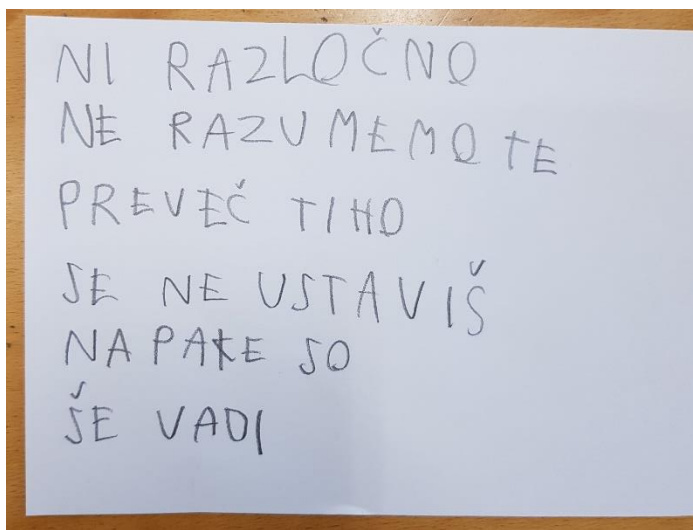 NI RAZLOČNO
NE RAZUMEMO TE
PREVEČ TIHO
SE NE USTAVIŠ
NAPAKE SO
ŠE VADI